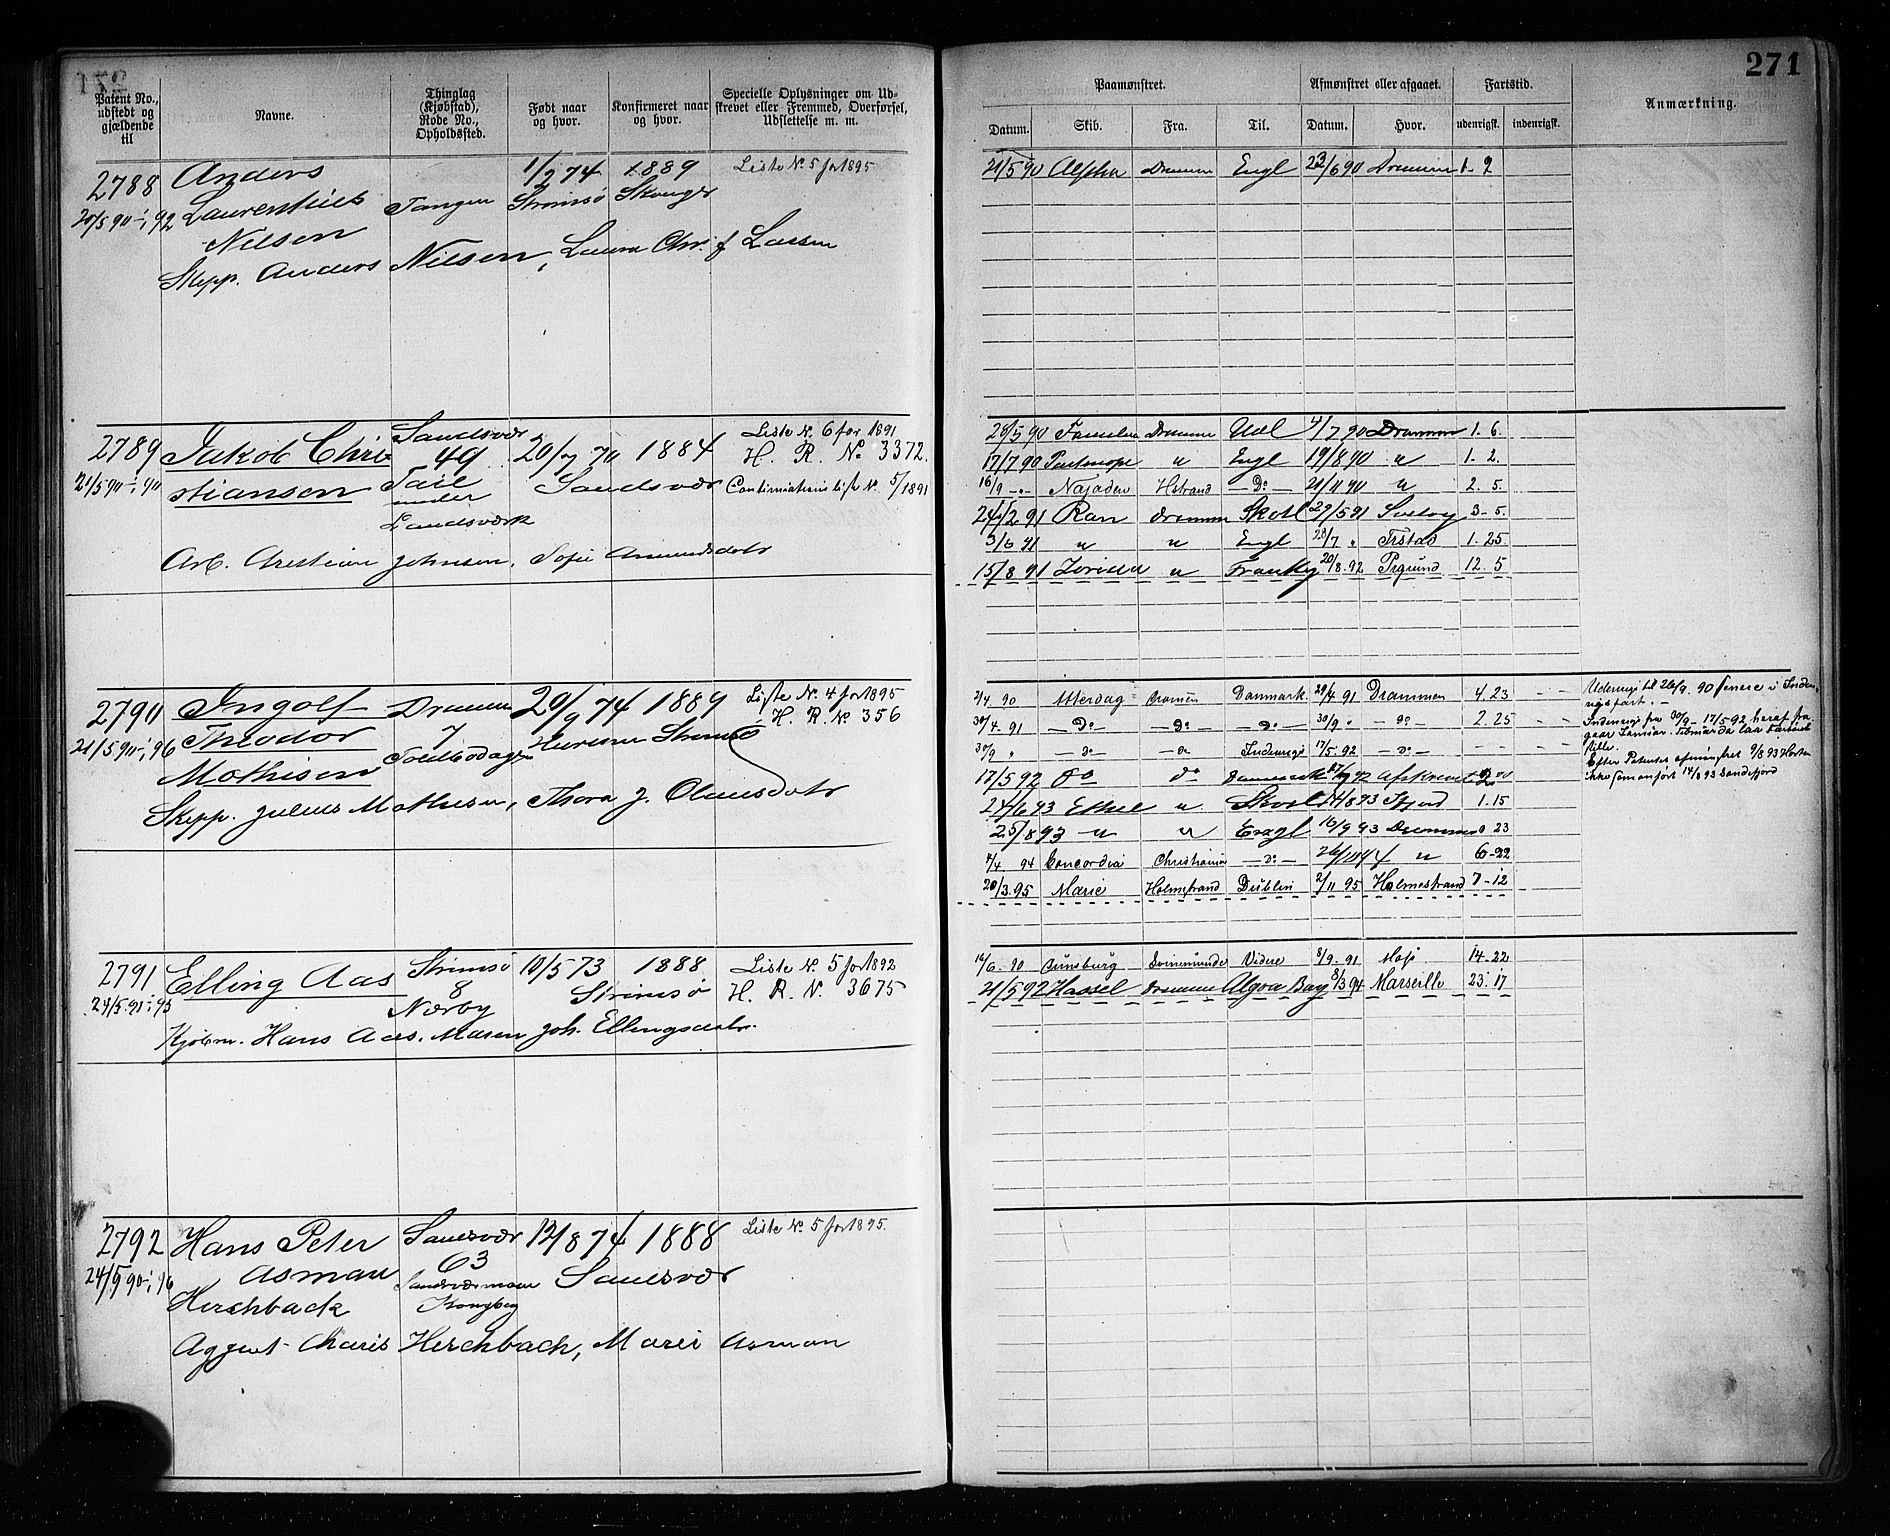 271
Patent No., udstedt og gjældende til
Navne.
Thinglag (Kjøbstad), Rode No., Opholdssted.
Født naar og hvor.
Konfirmeret naar og hvor.
Specielle Oplysninger om Udskrevet eller Fremmed, Overførsel, Udslettelse m. m.
Paamønstret.
Afmønstret eller afgaaet.
Fartstid.
Anmærkning.
Datum. Skib. Fra. Til. Datum. Hvor. udenrigsk. indenrigsk.
2788 Anders 1/2 74 1889 Liste No. 5 for 1895
20/5 90 - 92 Laurentius Tangen Strømsø Skouger
Nilsen
Skipp. Anders Nilsen, Laura Chr. f Lassen
21/5 90 Alpha Drammen Engl 23/6 90 Drammen 1. 2
2789 Jakob Chri Sandsvær 20/7 70 1884 Liste No. 6 for 1891
49 H. R. No 3372.
21/5 90 - 90 stiansen Sandsvær Continuations liste No. 5/1891
under
Landsværk
Arb. Cristian Johnsen, Sofie Amundsdatr
28/5 90 Drammen Udl /7 90 Drammen 1. 6.
17/7 90 Partenope " Engl 19/8 90 " 1. 2.
16/9 -"- Najaden Hstrand - Do - 21/11 90 " 2. 5.
24/2 91 Ran Drammen Skotl 29/5 91 Svelvig 3. 5.
3/6 91 " " Engl 28/7 " Frstad 1. 25.
15/8 91 " Frankg 20/8. 92 Pgrund 12. 5
2790 Ingolf Drammen 20/9 74 1889 Liste No. 4 for 1895
7 H. R. No 356
21/5 90 - 96 Theodor Strømsø
Mathisen
Skipp. Julius Mathisen, Thora J. Olausdatr
2/4 90 Atterdag Dramen Danmark 29/4 91 Drammen 4. 23
30/4. 91 - Do - - Do - - Do - 30/9 " - Do - 2. 25
30/9 " - Do - - Do Indenrigs 17/5. 92 - Do -
17/5 92 Do Do Danmark
24/6 93 Ethel " Skotl 14/8 93 1. 15
25/8 93 " " Engl 16/9 93 Drammen 0 23
4/4 94 Concordia Christiania - Do - " 6-22
20/3. 95 Marie Holmestrand Dublin 2/11 95 Holmestrand 7-12
Udenrigs til 26/9. 90 senere i Inden-
rigsfart. -
Indenrigs fra 30/9 - 17/5 92 heraf fra-
gaar Januar. Februar da laa Fartøiet
stille.
Efter Patentet afmønstret 9/8 93 Horten
ikke somanført 14/8 93 Sandefjord
2791 Elling Aas Strømsø 10/5 73 1888 Liste No. 5 for 1892
8 Strømsø H. R. No. 3675
24/5. 90 - 95 Nærby
Kjøbm. Hans Aas. Maren Joh. Ellingsdatr.
14/6. 90 Günsburg Videre 8/9. 91 Moss 14. 22
21/5 92 Hassel Drammen Algoa Bay 8/3 94 Marseille 23. 17
2792 Hans Peter Sandsvær 12/8 74 1888 Liste No. 5 for 1895.
24/5 90 - 96 Asman 63 Sandsvær
Herchback Kongbeg
Herchbach, Marie Asman